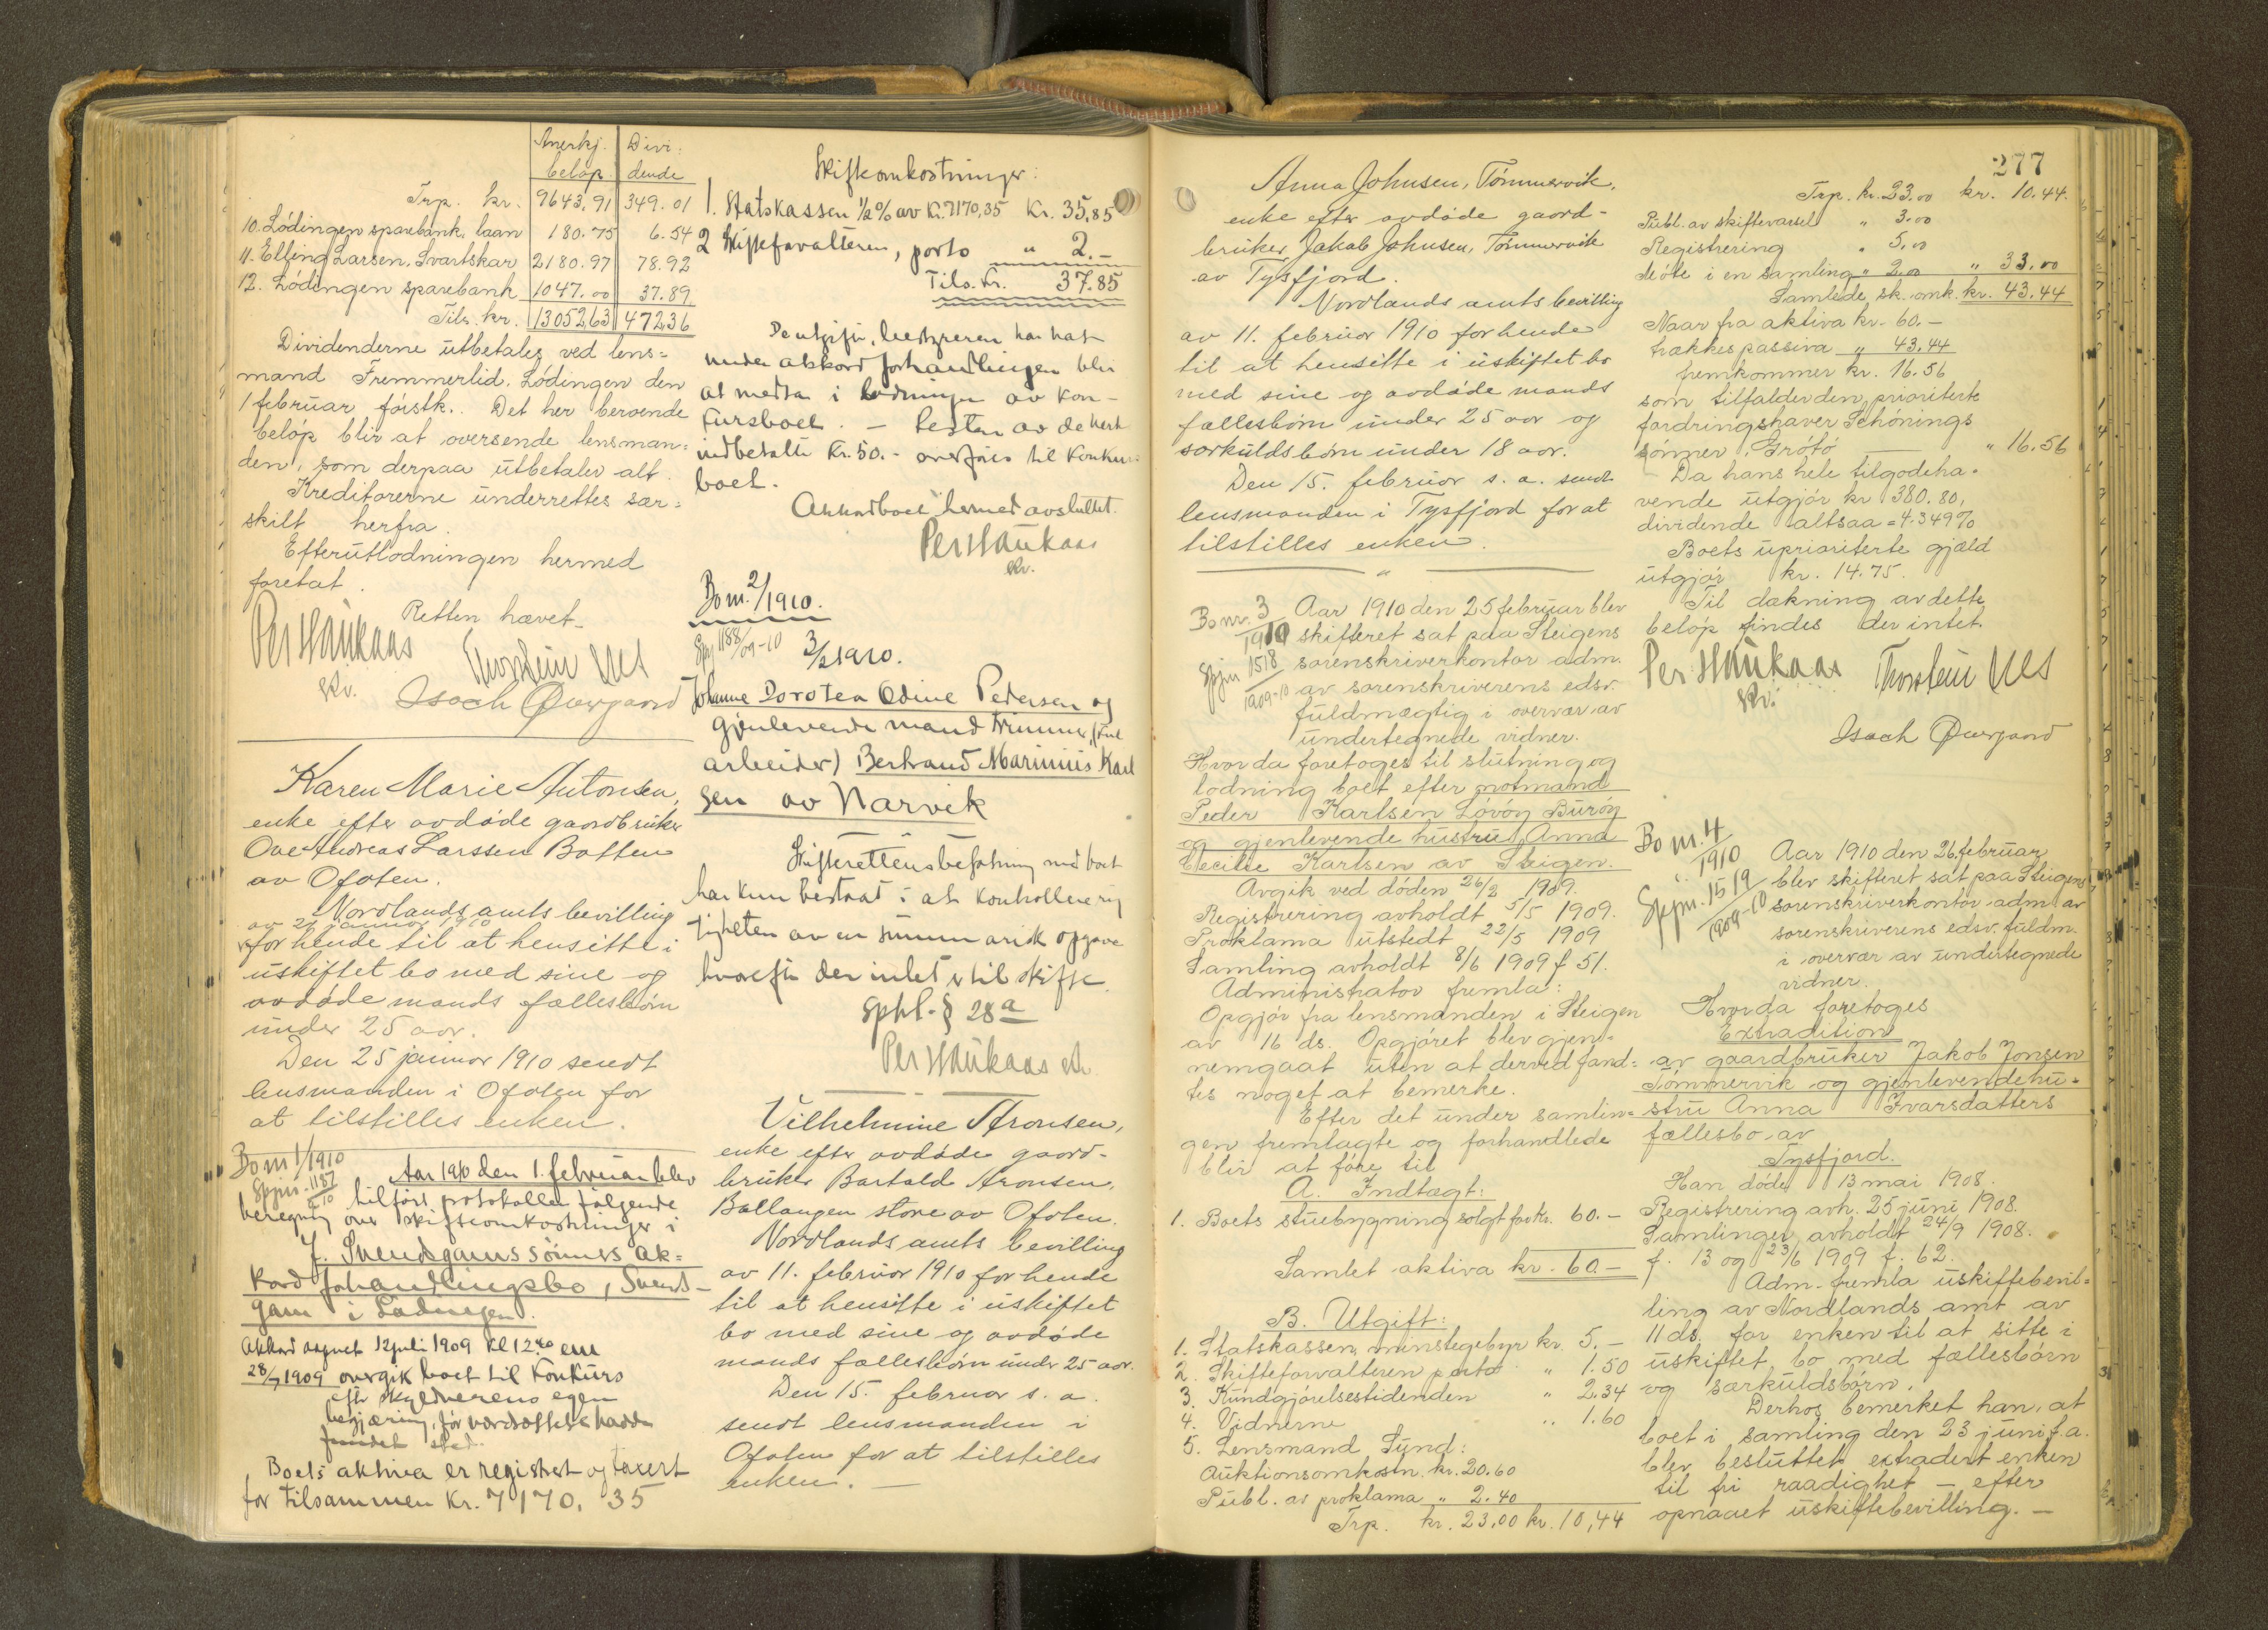 Anerkj. Divi-
beløp dende
Trp. kr. 9643,91 349.01
10. Lödingen sparebank, laan 180.75 6.54
11. Elling Larsen, Svartskar 2180.97 78.92
12. Lödingen sparebank 1047.00 37.89
Tils. kr. 13052,63 472,36
Dividenderne utbetales ved lens=
mand Fremmerlid, Lödingen den
1 februar förstk.. Det her beroende
belöp blir at oversende lensman=
den, som derpaa utbetaler alt.
Kreditorerne underrettes sær=
skilt herfra.
Efterutlodningen hermed
foretat.
Retten hævet.
Per Haukaas
skr.
Thorstein
Isach Qvergaard
Karen Marie Antonsen,
enke efter avdöde gaardbruker
Ove Andreas Larssen Botten
av Ofoten.
Nordlands amts bevilling
av 21 januar 1910
for hende til at hensitte i
uskiftet bo med sine og
avdöde mands fællesbörn
under 25 aar.
Den 25 januar 1910 sendt
lensmanden i Ofoten for
at tilstilles enken.
Bo nr 1/1910
Spjnr. 1187
Aar 1910 den 1. februar blev
tilfört protokollen fölgende
beregning over skifteomkostninger i
J. Svendsgams sönners ak=
kordforhandlingsbo, Svends-
gam i Lödingen.
Akkord aapnet 12 juli 1909 kl 12 em
28/7 1909 overgik boet til konkurs
eft skyldnerens egen
begjæring, för
fundet sted.
Boets aktiva er registrert og taxert
for tilsammen kr. 7170,35
Skifteomkostninger:
1. Statskassen 1/2 % av kr. 7170,35 kr. 35,85
2 Skifteforvalteren, porto " 2.-
Tils. kr. 37.85
De utgifter, bestyreren har hat
under akkordforhandlingen blir
at medta i lodningen av kon-
kursboet. - Resten av de
indbetalte kr. 50.- overföres til konkurs-
boet.
Akkordboet hermed avsluttet.
Per Haukaas
skr.
Bo nr. 2/1910.
Spj 1188/09-10
3/2 1910.
Johanne Dorotea Odine Pedersen og
gjenlevende mand
arbeider) Bertrand Marinius Karl
sen av Narvik
Skifterettens befatning med boet
har kun bestaat i at kontrollere rig
tigheten av en summarisk opgave
hvorefter der intet er til skifte.
Sphl. § 28 a
Per Haukaas skr.
Vilhelmine Aronsen,
enke efter avdöde gaard-
bruker Bartold Aronsen,
Ballangen store av Ofoten.
Nordlands amts bevilling
av 11. februar 1910 for hende
til at hensitte i uskiftet
bo med sine og avdöde
mands fællesbörn under 25 aar.
Den 15. februar s. a.
sendt lensmanden i
Ofoten for at tilstilles
enken. —
277
Anna Johnsen, Tömmervik,
enke efter avdöde gaard-
bruker Jakob Johnsen, Tömmervik
av Tysfjord.
Nordlands amts bevilling
av 11. februar 1910 for hende
til at hensitte i uskiftet bo
med sine og avdöde mands
fællesbörn under 25 aar og
særkuldsbörn under 18 aar.
Den 15. februar s. a. sendt
lensmanden i Tysfjord for at
tilstilles enken.
Bo nr. 3
1910
Spjnr 1518
1909-10
Aar 1910 den 25 februar blev
skifteret sat paa Steigens
sorenskriverkontor adm.
av sorenskriverens edsv.
fuldmægtig i overvær av
undertegnede vidner.
Hvor da foretoges til slutning og
lodning boet efter notmand
Peder Karlsen Lövöy Buröy
og gjenlevende hustru Anna
Cecilie Karlsen av Steigen.
Avgik ved döden 26/2 1909.
Registrering avholdt 5/5 1909.
Proklama utstedt 22/5 1909
Samling avholdt 8/6 1909 f 51.
Administrator fremla:
Opgjör fra lensmanden i Steigen
av 16 ds. Opgjöret blev gjen-
nemgaat uten at derved fand=
tes noget at bemerke.
Efter det under samlin=
gen fremlagte og forhandlede
blir at före til
A. Indtægt:
1. Boets stuebygning solgt for kr. 60.-
Samlet aktiva kr. 60.-
B. Utgift:
1. Statskassen, minstegebyr kr. 5.-
2. Skifteforvalteren porto " 1.50
3. Kundgjörelsestidenden " 2,34
4. Vidnerne " 1.60
5. Lensmand Sund:
Auktionsomkostn. kr. 20.60
Publ. av proklama " 2.40
Trp. kr. 23,00 kr. 10,44
Trp. kr. 23.00 kr. 10.44.
Publ. av skiftevarsel " 3.00
Registrering " 5,00
Möte i en samling " 2,00 " 33.00
Samlede sk. omk. kr. 43.44
Naar fra aktiva kr. 60.-
trækkes passiva " 43.44
fremkommer kr. 16.56
som tilfalder den prioriterte
fordringshaver Schönings
sönner, Grötö " 16.56
Da hans hele tilgodeha-
vende utgjör kr 380.80,
dividende altsaa = 4.349%
Boets uprioriterte gjæld
utgjör kr. 14.75.
Til dækning av dette
belöp findes der intet.
Per Haukaas
skr.
Thorstein
Isach Qvergaard
Bo nr. 4
1910
Spjnr. 1519
1909-10
Aar 1910 den 26. februar
blev skifteret sat paa Steigens
sorenskriverkontor adm. av
sorenskriverens edsv. fuldm.
i overvær av undertegnede
vidner.
Hvor da foretoges
Extradition
av gaardbruker Jakob Jonsen
Tömmervik og gjenlevende hu-
stru Anna Ivarsdatters
fællesbo av
Tysfjord.
Han döde 13 mai 1908.
Registrering avh. 25 juni 1908.
Samlinger avholdt 24/9 1908.
f. 13 og 23/6 1909 f. 62.
Adm. fremla uskiftebevil=
ling av Nordlands amt av
11 ds. for enken til at sitte i
uskiftet bo med fællesbörn
og særkuldsbörn.
Derhos bemerket han, at
boet i samling den 23 juni f. a.
blev besluttet extradert enken
til fri raadighet — efter
opnaaet uskiftebevilling. —